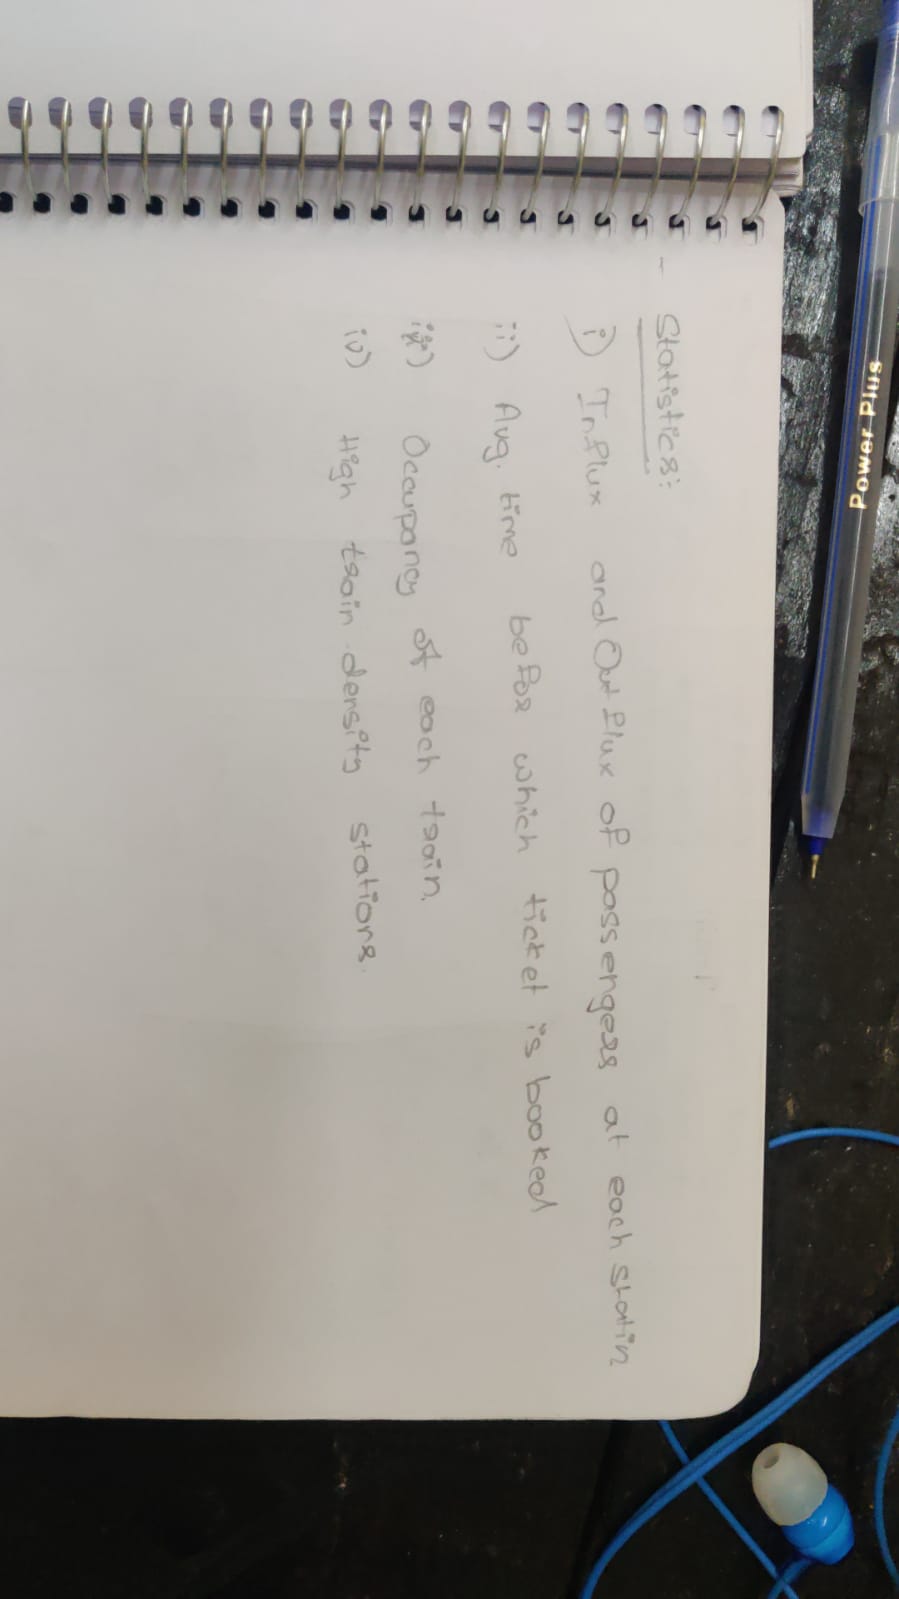 - Statistics:
i) Influx and Outflux of passengers at each statin
ii) Avg. time befor which ticket is booked
iii) Occupancy of each train.
iv) High train density stations.
Power Plus